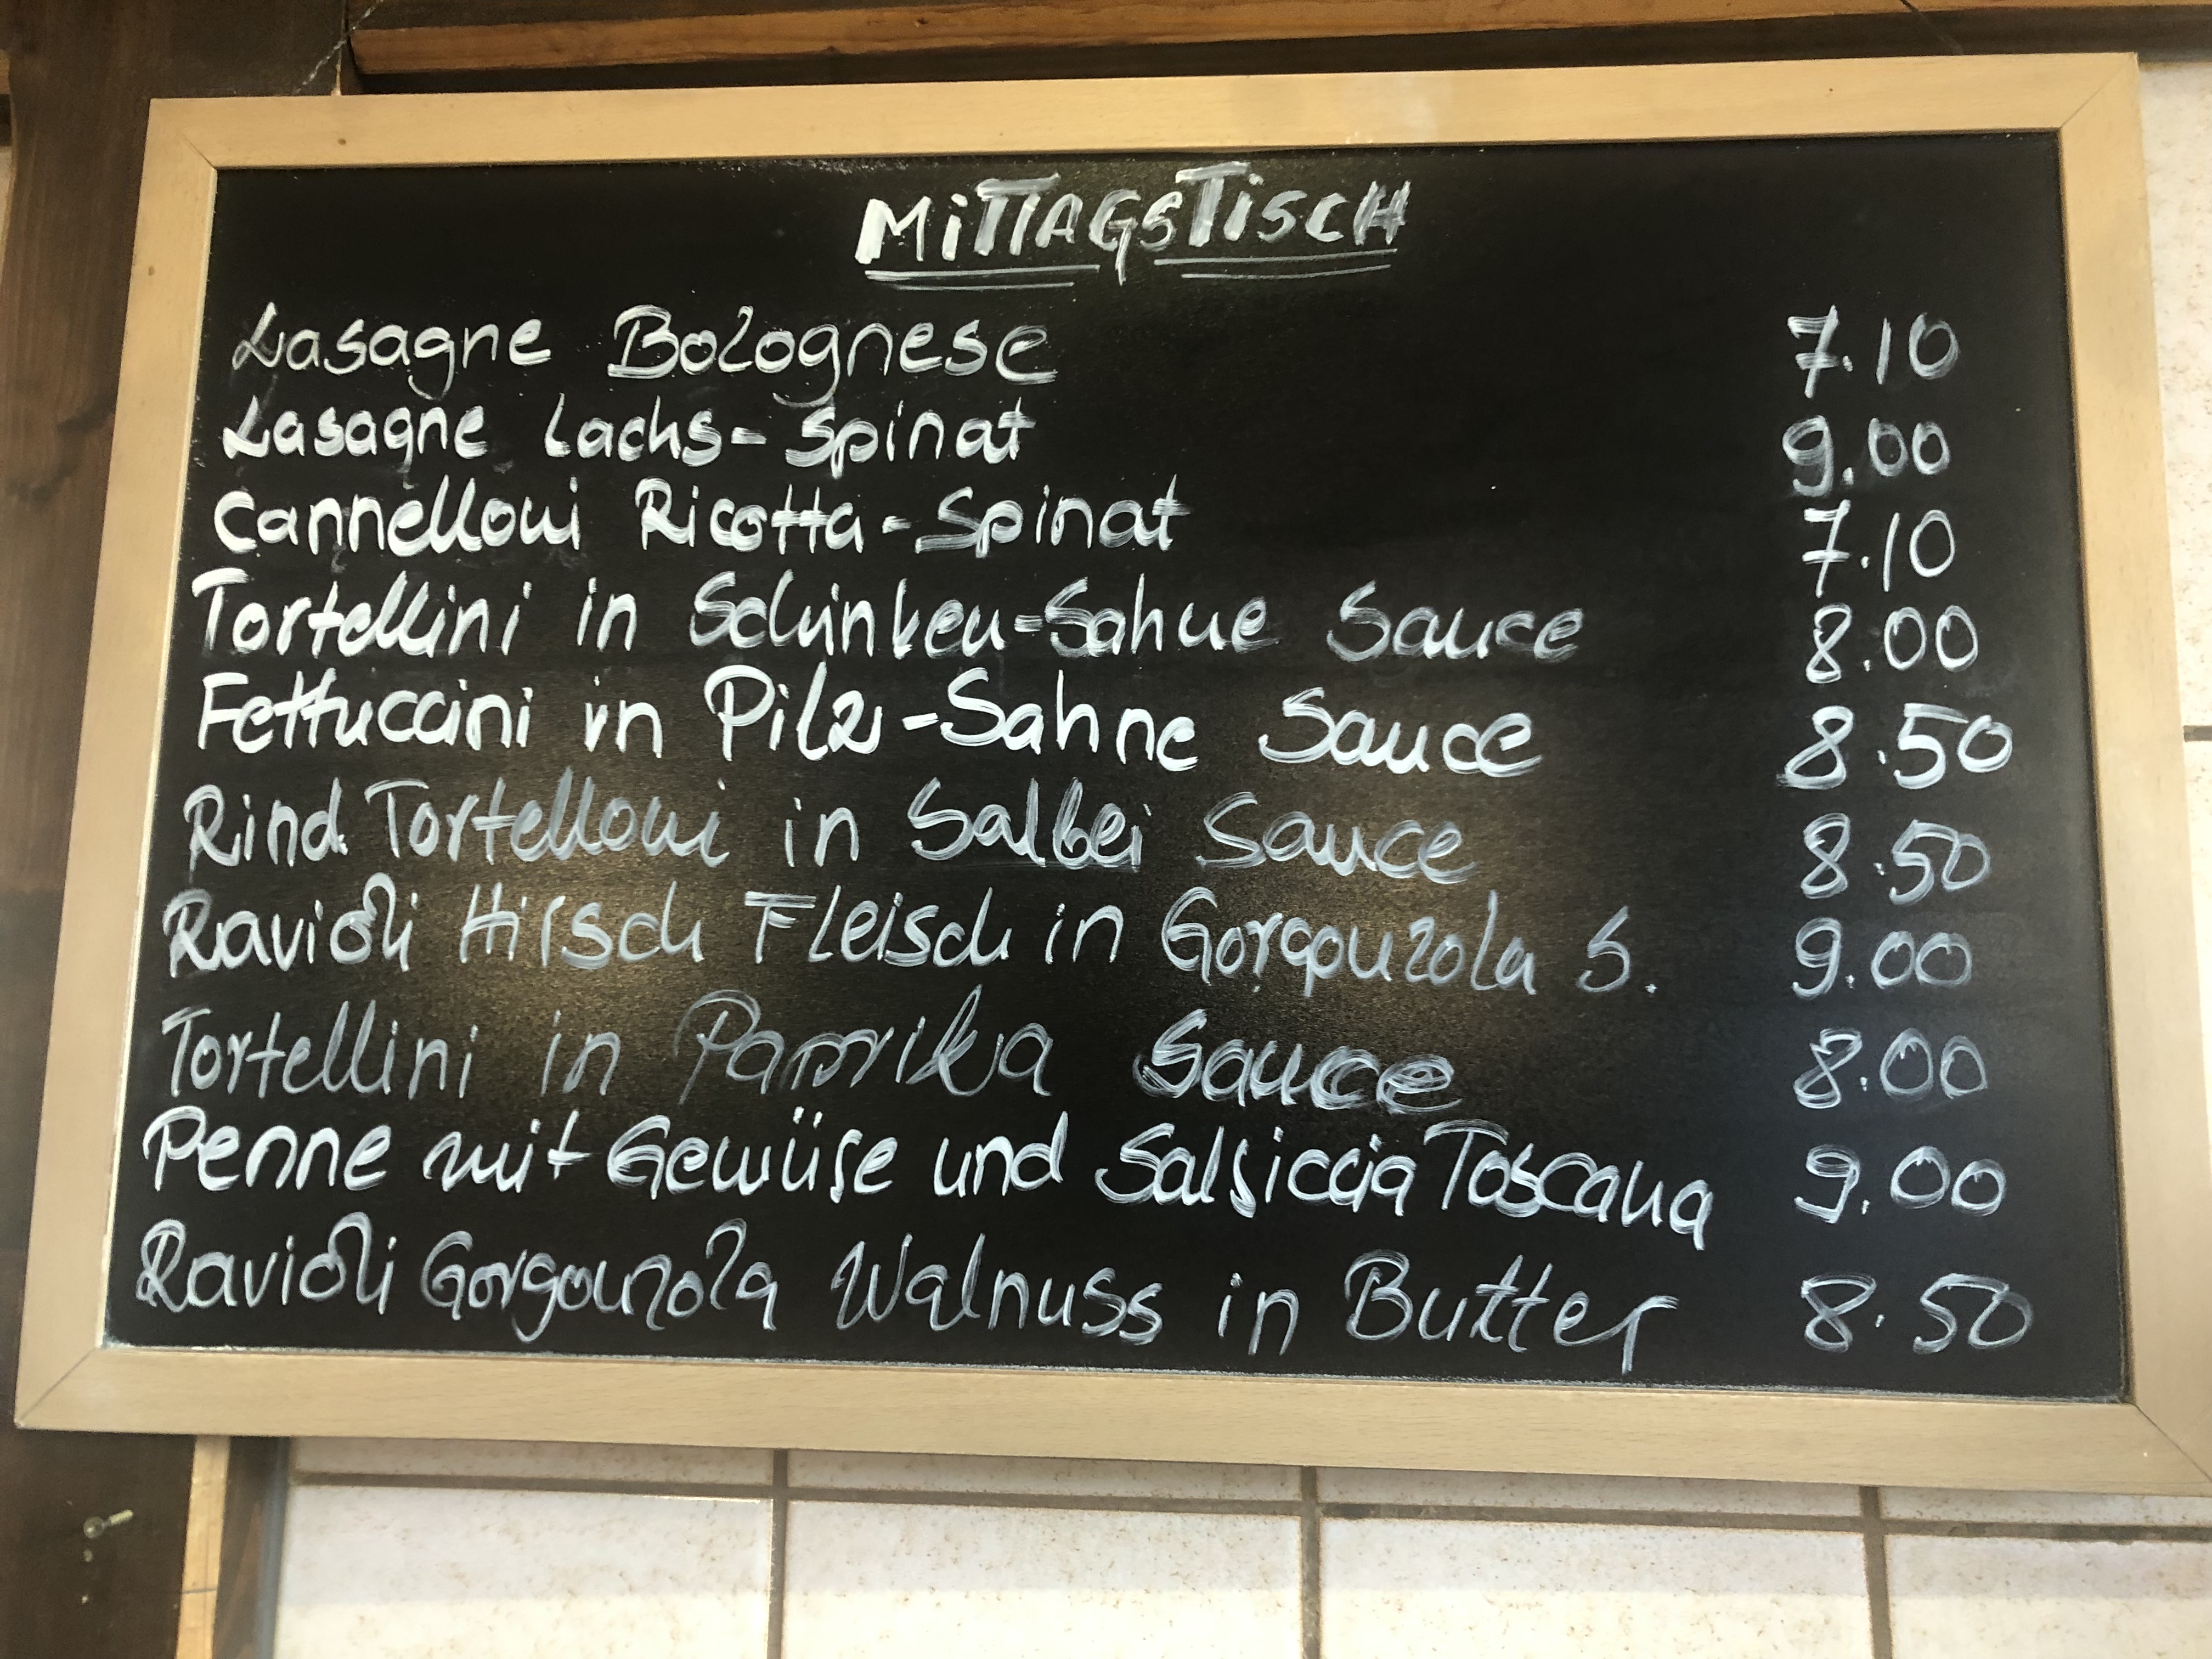 MiTTAGSTiSCH
Lasagne Bolognese 7.10
Lasagne Lachs-Spinat 9.00
Cannelloni Ricotta-Spinat 7.10
Tortellini in Schinken-Sahne Sauce 8.00
Fettuccini in Pilz-Sahne Sauce 8.50
Rind Tortelloni in Salbei Sauce 8.50
Ravioli Hirsch Fleisch in Gorgonzola S. 9.00
Tortellini in Paprika Sauce 8.00
Penne mit Gemüse und Salsiccia Toscana 9.00
Ravioli Gorgonzola Walnuss in Butter 8.50